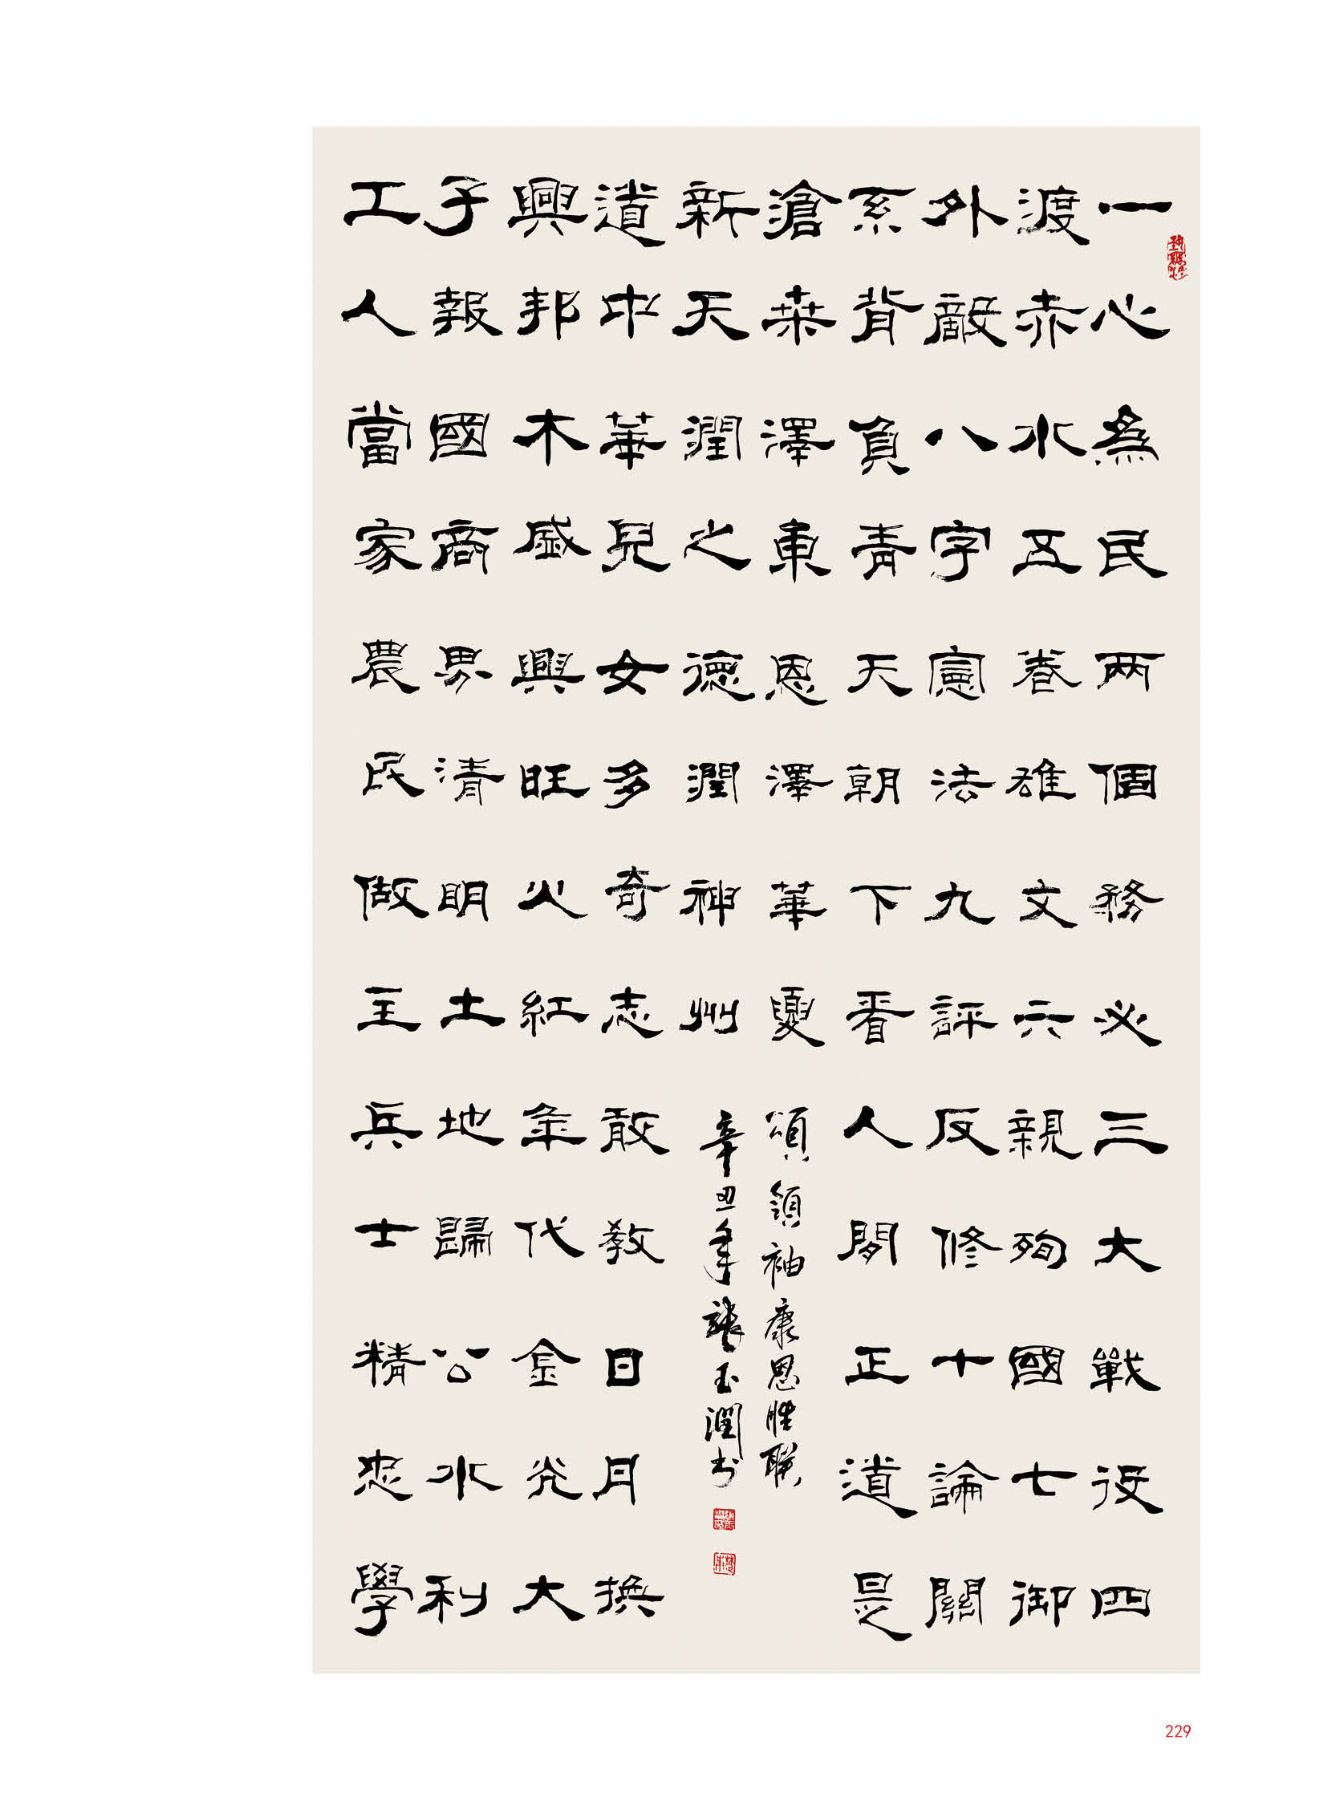 一心為民两個務必三大戰役四
渡赤水五卷雄文六親殉國七御
外敵八字憲法九評反修十論關
系背負青天朝下看人間正道是
滄桑澤東恩澤華夏
工人當家農民做主兵士精忠學
子報國商界清明土地歸公水利
興邦木盛興旺火紅年代金光大
道中華兒女多奇志敢教日月換
新天潤之德潤神州
頌領袖康思胜聯
辛丑年張玉潤书
229